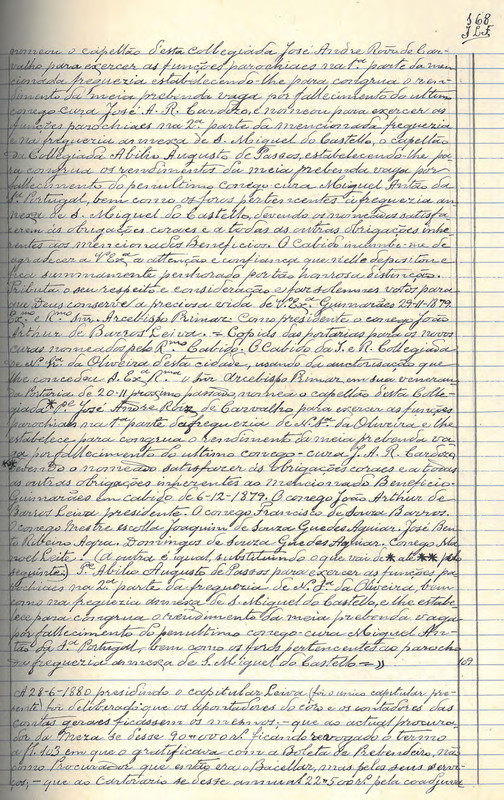 168
nomeou o capellão d'esta collegiada José André Roiz de Car-
valho para exercer as funções parochiaes na 1ª parte da men-
cionada freguezia estabelecendo-lhe para congrua o ren-
dimento da meia prebenda vaga por fallecimento do ultimo
conego-cura José A. R. Cardozo, e nomeou para exercer as
funções parochiaes na 2ª parte da mencionada freguezia
e na freguezia annexa de S. Miguel do Castello, o capellão
da Collegiada Abilio Augusto de Passos, estabelecendo-lhe pa-
ra congrua os rendimentos da meia prebenda vaga por
fallecimento do penultimo conego-cura Miguel Antão da
Sª Portugal, bem como os foros pertencentes á freguezia an-
nexa de S. Miguel do Castello, devendo os nomeados satisfa-
zerem ás obrigações coraes e a todas as outras obrigações inhe-
rentes aos mencionados Beneficios. O Cabido incumbe-me de
agradecer a Vª Exª a attenção e confiança que n'elle depositou e
fica summamente penhorado por tão honrosa distincção.
Tributa o seu respeito e consideração e faz solemnes votos para
que Deus conserve a preciosa vida de Vª Exª. Guimarães 29-11-1879.
Exmo e Rmo Snr. Arcebispo Primaz. Como presidente o conego João
Arthur de Barros Leiva. = Copias das portarias para os novos
curas nomeados pelo Rmo Cabido. O Cabido da I. e R. Collegiada
de N. Sª da Oliveira d'esta cidade, usando da auctorisação que
lhe concedeu S. Exª Rma o Snr Arcebispo Primaz, em sua veneran-
da Portaria de 20-11 proximo passado, nomeia o capellão desta Colle-
giada * Pe José André Roiz de Carvalho para exercer as funções
parochiaes na 1ª parte da freguezia de N. Sª da Oliveira e lhe
estabelece para congrua o rendimento da meia prebenda va-
ga por fallecimento do ultimo conego-cura J. A. R. Cardozo,
** devendo o nomeado satisfazer ás obrigações coraes e a todas
as outras obrigações inherentes ao mencionado Beneficio.
Guimarães em cabido de 6-12-1879. O conego João Arthur de
Barros Leiva presidente. O conego Francisco de Souza Barros.
O conego Mestre escolla Joaquim de Souza Guedes Aguiar. José Ben-to
Ribeiro Agra. Domingos de Souza Guedes Aguiar. Conego Ma-
noel Leite. (A outra é igual, substituindo o que vai de * até ** pelo
seguinte): Pe Abilio Augusto de Passos para exercer as funções pa-
rochiaes na 2ª parte da freguezia de N. Sª da Oliveira, bem
como na freguezia annexa de S. Miguel do Castello, e lhe estabe-
lece para congrua o rendimento da meia prebenda vaga
por fallecimento do penultimo conego-cura Miguel An-
tão da Sª Portugal, bem como os foros pertencentes ao parocho
da freguezia annexa de S. Miguel do Castello = »
109
A 28-6-1880 presidindo o capitular Leiva (foi o unico capitular pre-
sente) foi deliberado: que os apontadores do côro e os contadores das
contas geraes ficassem os mesmos; - que ao actual procura-
dor da Meza se desse 90#000 rs ficando revogado o termo
a fl. 103 em que o gratificava com a Boleta de Prebendeiro, mas
como Procurador que então era o Bacellar, mas pelos seus servi-
ços; - que ao Cartorario se desse annual 22#500 rs pela coadjuva